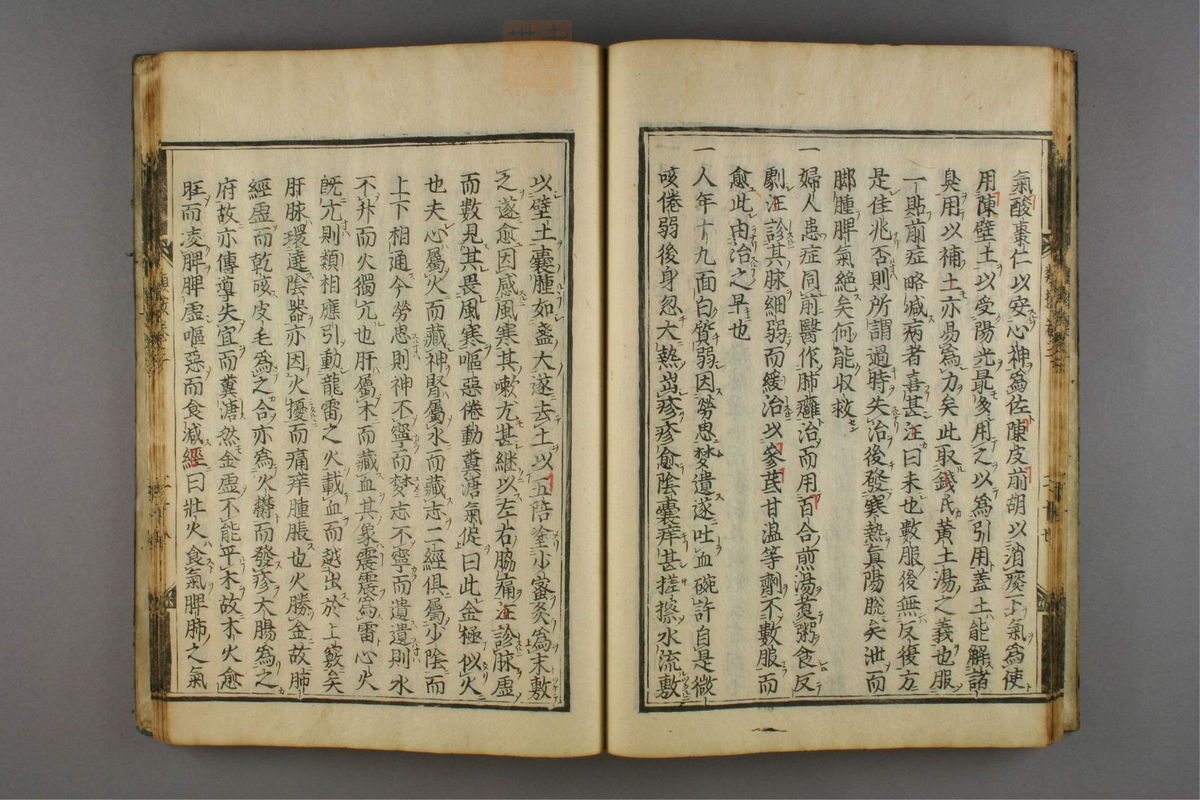 氣酸棗仁以安心神爲佐陳皮前胡以消痰下氣爲使
用陳壁土以受陽光最多用之以爲引用蓋土能解諸
臭用以補土亦易爲力矣此取錢氏黃土湯之義也服
一貼前症略減病者喜甚汪曰未也數服後無反復方
是佳兆否則所謂過時失治後發寒熱眞陽脫矣泄而
脚腫脾氣絶矣何能収救
一婦人患症同前醫作肺癰治而用百合煎湯煮粥食反
劇汪診其脉細弱而緩治以參芪甘温等劑不數服而
愈此由治之早也
一人年十九面白質弱因勞思夢遺遂吐血碗許自是微
咳倦弱後身忽大熱出疹疹愈陰囊痒甚搓擦水流敷
以壁土囊腫如盞大遂去土以五陪塗少蜜炙爲末敷
之遂愈因感風寒其嗽尤甚継以左右脇痛汪診脉虚
而數見其畏風寒嘔惡倦動糞溏氣促曰此金極似火
也夫心屬火而藏神腎屬水而藏志二經俱屬少陰而
上下相通今勞思則神不寧而夢志不寧而遺遺則水
不升而火獨亢也肝屬木而藏血其象震震爲雷心火
旣亢則類相應引動龍雷之火載血而越出於上竅矣
肝脉環遶陰器亦因火擾而痛痒腫脹也火勝金故肺
經虚而乾咳皮毛爲之合亦爲火欝而發疹大腸爲之
府故亦傳導失宜而糞溏然金虚不能平木故木火愈
旺而凌脾脾虚嘔惡而食減經曰壯火食氣脾肺之氣